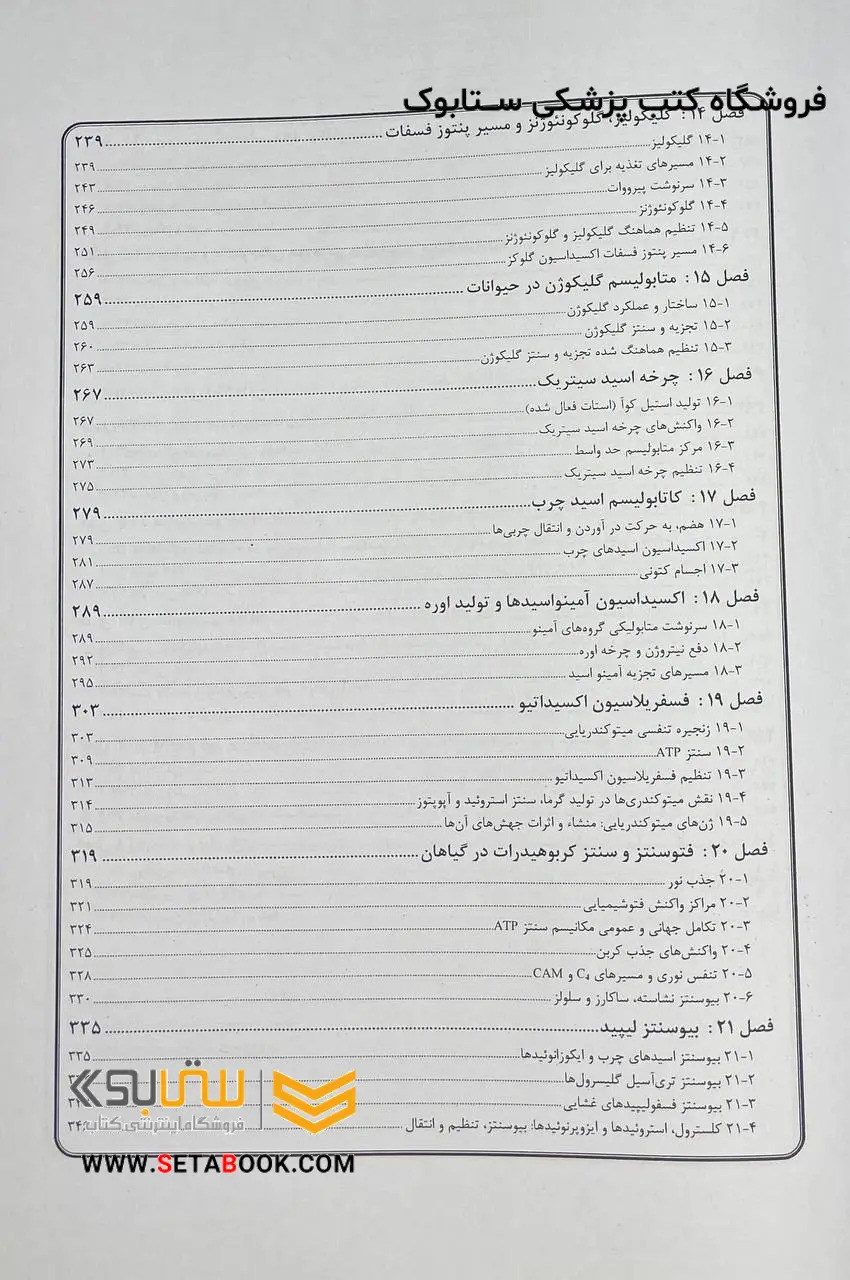 فروشگاه کتب پزشکی ستابوک
فصل ۱۴: گلیکولیز، گلوکونئوژنز و مسیر پنتوز فسفات ۲۳۹
۱۴-۱ گلیکولیز ۲۳۹
۱۴-۲ مسیرهای تغذیه برای گلیکولیز ۲۴۳
۱۴-۳ سرنوشت پیرووات ۲۴۶
۱۴-۴ گلوکونئوژنز ۲۴۹
۱۴-۵ تنظیم هماهنگ گلیکولیز و گلوکونئوژنز ۲۵۱
۱۴-۶ مسیر پنتوز فسفات اکسیداسیون گلوکز ۲۵۶
فصل ۱۵: متابولیسم گلیکوژن در حیوانات ۲۵۹
۱۵-۱ ساختار و عملکرد گلیکوژن ۲۵۹
۱۵-۲ تجزیه و سنتز گلیکوژن ۲۶۰
۱۵-۳ تنظیم هماهنگ شده تجزیه و سنتز گلیکوژن ۲۶۳
فصل ۱۶: چرخه اسید سیتریک ۲۶۷
۱۶-۱ تولید استیل کوآ (استات فعال شده) ۲۶۷
۱۶-۲ واکنش‌های چرخه اسید سیتریک ۲۶۹
۱۶-۳ مرکز متابولیسم حد واسط ۲۷۳
۱۶-۴ تنظیم چرخه اسید سیتریک ۲۷۵
فصل ۱۷: کاتابولیسم اسید چرب ۲۷۹
۱۷-۱ هضم، به حرکت در آوردن و انتقال چربی‌ها ۲۷۹
۱۷-۲ اکسیداسیون اسیدهای چرب ۲۸۱
۱۷-۳ اجسام کتونی ۲۸۷
فصل ۱۸: اکسیداسیون آمینواسیدها و تولید اوره ۲۸۹
۱۸-۱ سرنوشت متابولیکی گروه‌های آمینو ۲۸۹
۱۸-۲ دفع نیتروژن و چرخه اوره ۲۹۲
۱۸-۳ مسیرهای تجزیه آمینو اسید ۲۹۵
فصل ۱۹: فسفریلاسیون اکسیداتیو ۳۰۳
۱۹-۱ زنجیره تنفسی میتوکندریایی ۳۰۳
۱۹-۲ سنتز ATP ۳۰۹
۱۹-۳ تنظیم فسفریلاسیون اکسیداتیو ۳۱۳
۱۹-۴ نقش میتوکندری‌ها در تولید گرما، سنتز استروئید و آپوپتوز ۳۱۴
۱۹-۵ ژن‌های میتوکندریایی: منشاء و اثرات جهش‌های آن‌ها ۳۱۵
فصل ۲۰: فتوسنتز و سنتز کربوهیدرات در گیاهان ۳۱۹
۲۰-۱ جذب نور ۳۱۹
۲۰-۲ مراکز واکنش فتوشیمیایی ۳۲۱
۲۰-۳ تکامل جهانی و عمومی مکانیسم سنتز ATP ۳۲۴
۲۰-۴ واکنش‌های جذب کربن ۳۲۵
۲۰-۵ تنفس نوری و مسیرهای C₄ و CAM ۳۲۸
۲۰-۶ بیوسنتز نشاسته، ساکارز و سلولز ۳۳۰
فصل ۲۱: بیوسنتز لیپید ۳۳۵
۲۱-۱ بیوسنتز اسیدهای چرب و ایکوزانوئیدها ۳۳۵
۲۱-۲ بیوسنتز تری‌آسیل گلیسرول‌ها
۲۱-۳ بیوسنتز فسفولیپیدهای غشایی
۲۱-۴ کلسترول، استروئیدها و ایزوپرنوئیدها: بیوسنتز، تنظیم و انتقال
ستابوک
فروشگاه اینترنتی کتاب
WWW.SETABOOK.COM